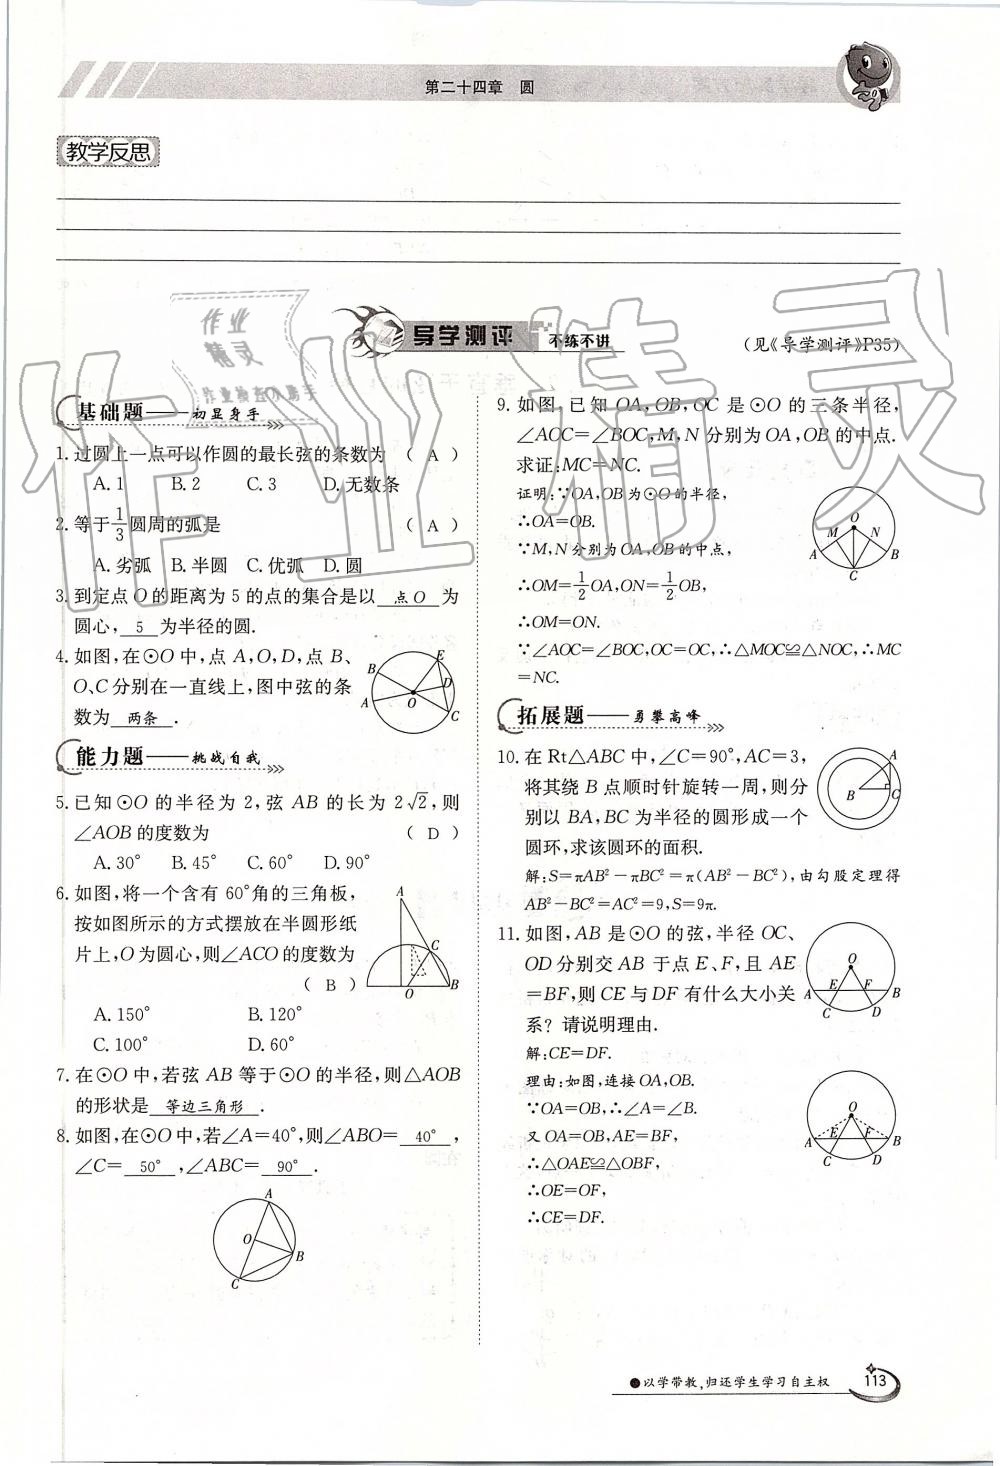 第二十四章 圆
教学反思
导学测评 不练不讲
(见《导学测评》P35)
基础题——初显身手
1. 过圆上一点可以作圆的最长弦的条数为 ( A )
A. 1 B. 2 C. 3 D. 无数条
2. 等于1/3圆周的弧是 ( A )
A. 劣弧 B. 半圆 C. 优弧 D. 圆
3. 到定点 O 的距离为 5 的点的集合是以 点O 为
圆心, 5 为半径的圆.
4. 如图,在⊙O 中,点 A,O,D,点 B、
O、C 分别在一直线上,图中弦的条
数为 两条 .
E
B
D
A
O
C
能力题——挑战自我
5. 已知⊙O 的半径为 2,弦 AB 的长为 2√2,则
∠AOB 的度数为 ( D )
A. 30° B. 45° C. 60° D. 90°
6. 如图,将一个含有 60°角的三角板,
按如图所示的方式摆放在半圆形纸
片上,O 为圆心,则∠ACO 的度数为
( B )
A. 150° B. 120°
C. 100° D. 60°
A
C
O B
7. 在⊙O 中,若弦 AB 等于⊙O 的半径,则△AOB
的形状是 等边三角形 .
8. 如图,在⊙O 中,若∠A=40°,则∠ABO= 40° ,
∠C= 50° ,∠ABC= 90° .
A
O
B
C
9. 如图,已知 OA,OB,OC 是⊙O 的三条半径,
∠AOC=∠BOC,M,N 分别为 OA,OB 的中点.
求证:MC=NC.
证明:∵OA,OB为⊙O的半径,
∴OA=OB.
∵M,N分别为OA,OB的中点,
∴OM=1/2OA,ON=1/2OB,
∴OM=ON.
∵∠AOC=∠BOC,OC=OC,∴△MOC≌△NOC,∴MC
=NC.
O
M N
A B
C
拓展题——勇攀高峰
10. 在 Rt△ABC 中,∠C=90°,AC=3,
将其绕 B 点顺时针旋转一周,则分
别以 BA,BC 为半径的圆形成一个
圆环,求该圆环的面积.
解:S=πAB²-πBC²=π(AB²-BC²),由勾股定理得
AB²-BC²=AC²=9,S=9π.
A
B C
11. 如图,AB 是⊙O 的弦,半径 OC、
OD 分别交 AB 于点 E、F,且 AE
=BF,则 CE 与 DF 有什么大小关
系? 请说明理由.
解:CE=DF.
理由:如图,连接OA,OB.
∵OA=OB,∴∠A=∠B.
又OA=OB,AE=BF,
∴△OAE≌△OBF,
∴OE=OF,
∴CE=DF.
O
E F
A B
C D
O
E F
A B
C D
●以学带教,归还学生学习自主权
113
作业精灵
作业
精灵